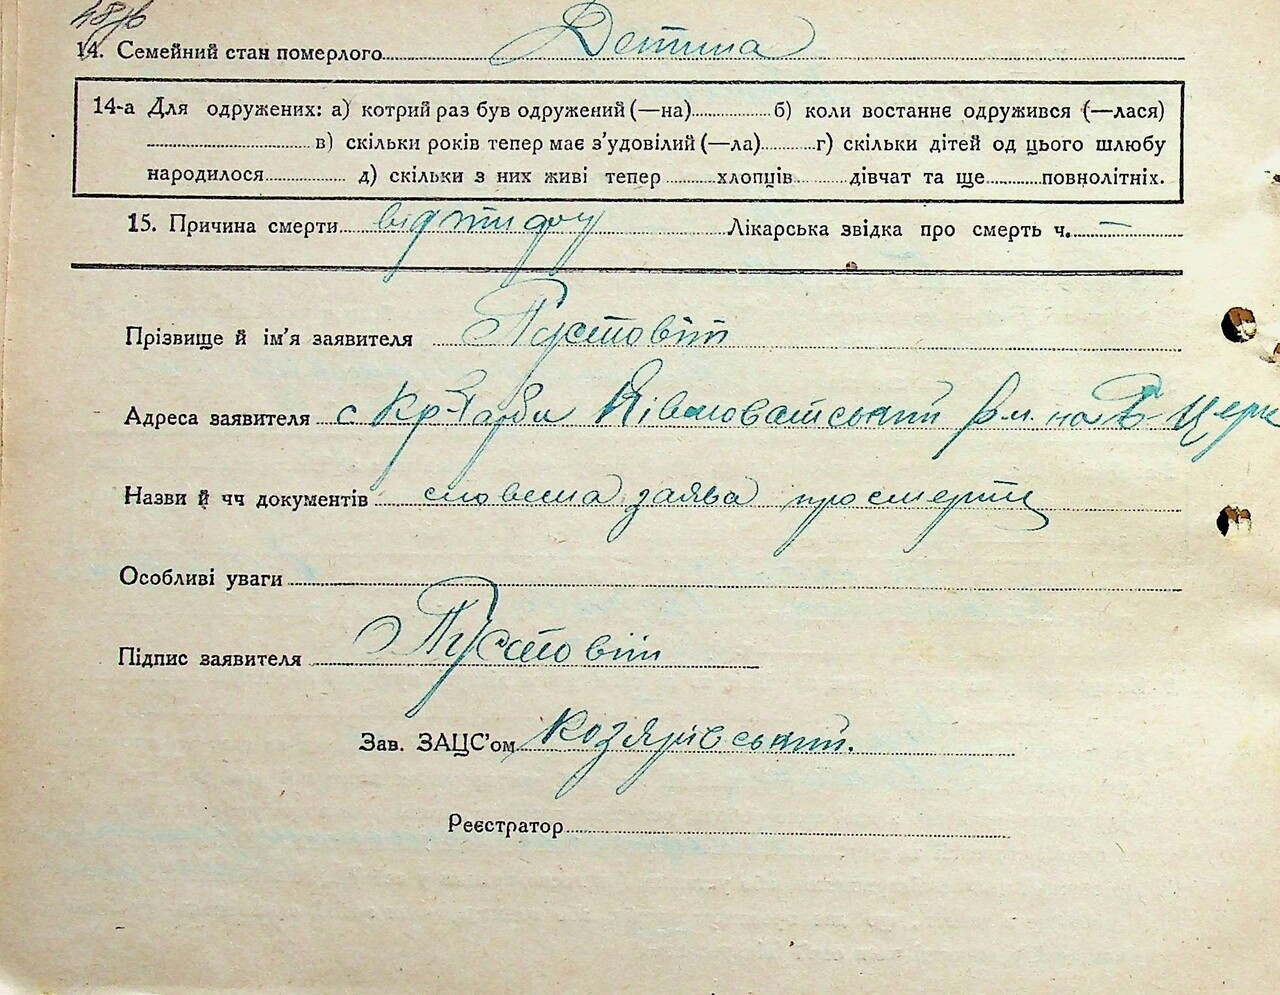 14. Семейний стан померлого Дитина
14-а Для одружених: а) котрий раз був одружений (—на) б) коли востаннє одружився (—лася)
в) скільки років тепер має з’удовілий (—ла) г) скільки дітей од цього шлюбу
народилося д) скільки з них живі тепер хлопців дівчат та ще повнолітніх.
15. Причина смерти від тифу Лікарська звідка про смерть ч. —
Прізвище й ім’я заявителя Пустовіт
Адреса заявителя с Кр-Ярби на Б-Церк
Назви й чч документів словесна заява про смерть
Особливі уваги
Підпис заявителя Пустовіт
Зав. ЗАЦС’ом Козярівський.
Реєстратор